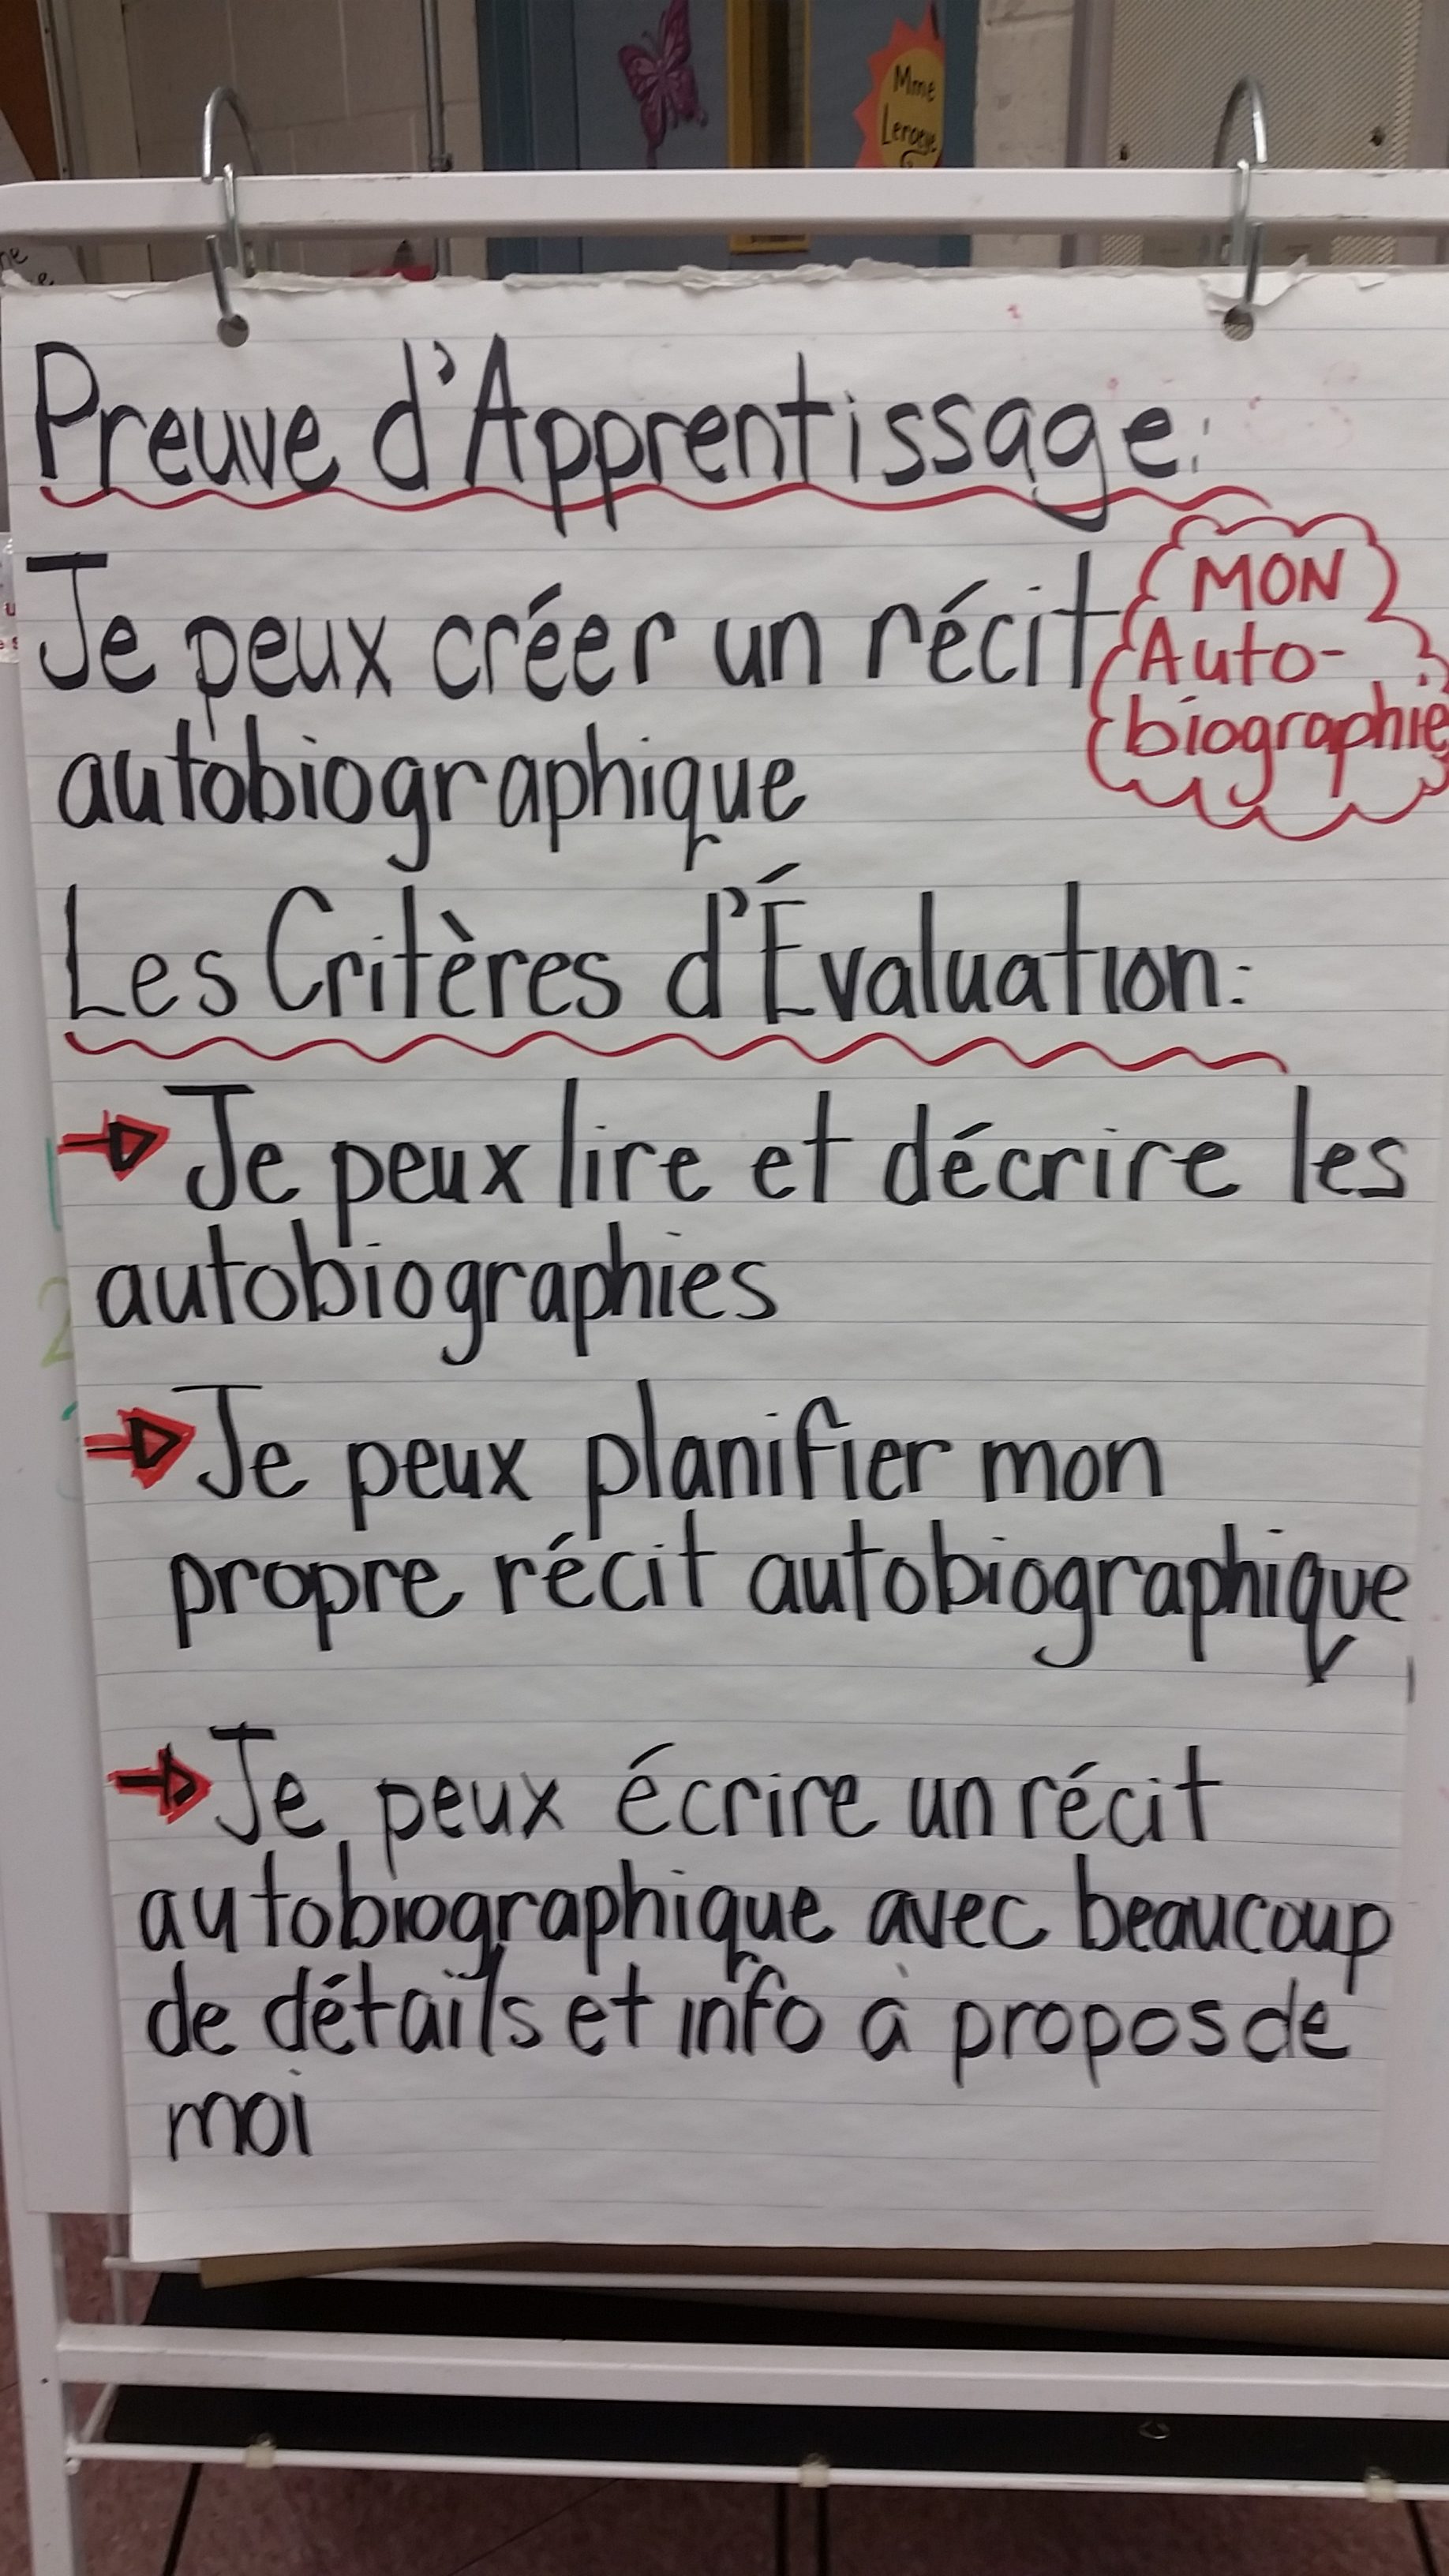 Mme
Preuve d'Apprentissage:
Je peux créer un récit
autobiographique
MON
Auto-
biographie
Les Critères d'Évaluation:
Je peux lire et décrire les
autobiographies
Je peux planifier mon
propre récit autobiographique
Je peux écrire un récit
autobiographique avec beaucoup
de détails et info à propos de
moi